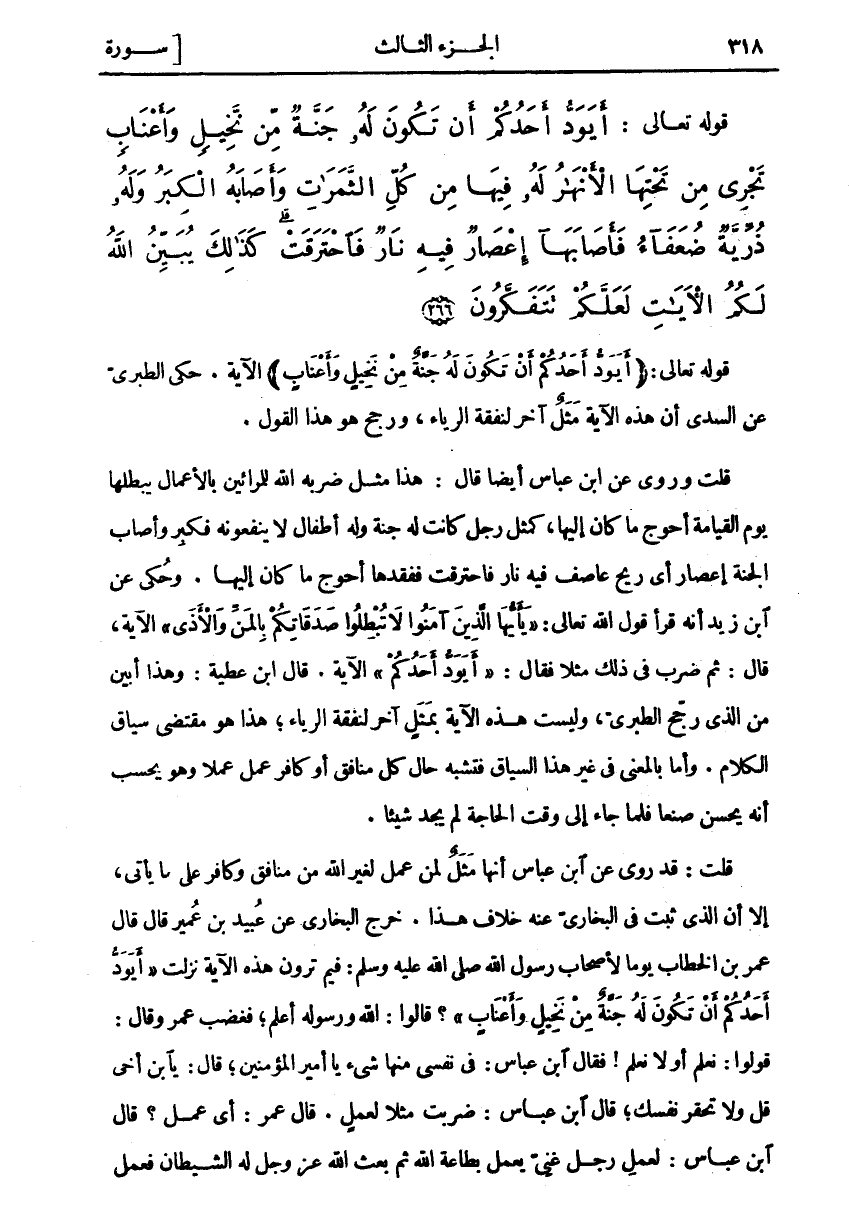 ٣١٨ الجزء الثالث [ سورة
قوله تعالى : أَيَوَدُّ أَحَدُكُمْ أَن تَكُونَ لَهُۥ جَنَّةٌ مِّن نَّخِيلٍ وَأَعْنَابٍ
تَجْرِى مِن تَحْتِهَا الْأَنْهَٰرُ لَهُۥ فِيهَا مِن كُلِّ الثَّمَرَٰتِ وَأَصَابَهُ الْكِبَرُ وَلَهُۥ
ذُرِّيَّةٌ ضُعَفَآءُ فَأَصَابَهَآ إِعْصَارٌ فِيهِ نَارٌ فَٱحْتَرَقَتْ ۗ كَذَٰلِكَ يُبَيِّنُ اللَّهُ
لَكُمُ الْأَيَٰتِ لَعَلَّكُمْ تَتَفَكَّرُونَ ﴿٢٦٦﴾
قوله تعالى: ﴿أَيَوَدُّ أَحَدُكُمْ أَنْ تَكُونَ لَهُ جَنَّةٌ مِنْ نَخِيلٍ وَأَعْنَابٍ﴾ الآية . حكى الطبرىّ
عن السدى أن هذه الآية مَثَلٌ آخر لنفقة الرياء ، ورجح هو هذا القول .
قلت وروى عن ابن عباس أيضا قال : هذا مثل ضربه الله للرائين بالأعمال يبطلها
يوم القيامة أحوج ما كان إليها، كمثل رجل كانت له جنة وله أطفال لا ينفعونه فكبر وأصاب
الجنة إعصار أى ريح عاصف فيه نار فاحترقت ففقدها أحوج ما كان إليها . وحُكى عن
ٱبن زيد أنه قرأ قول الله تعالى: «يَأَيُّهَا الَّذِينَ آمَنُوا لَا تُبْطِلُوا صَدَقَاتِكُمْ بِالْمَنِّ وَالْأَذَى» الآية،
قال : ثم ضرب فى ذلك مثلا فقال : « أَيَوَدُّ أَحَدُكُمْ » الآية . قال ابن عطية : وهذا أبين
من الذى رجّح الطبرىّ، وليست هذه الآية بمَثَلٍ آخر لنفقة الرياء ؛ هذا هو مقتضى سياق
الكلام . وأما بالمعنى فى غير هذا السياق فتشبه حال كل منافق أو كافر عمل عملا وهو يحسب
أنه يحسن صنعا فلما جاء إلى وقت الحاجة لم يجد شيئا .
قلت : قد روى عن ٱبن عباس أنها مَثَلٌ لمن عمل لغير الله من منافق وكافر على ما يأتى،
إلا أن الذى ثبت فى البخارىّ عنه خلاف هذا . خرج البخارى عن عُبيد بن عُمير قال قال
عمر بن الخطاب يوما لأصحاب رسول الله صلى الله عليه وسلم: فيم ترون هذه الآية نزلت « أَيَوَدُّ
أَحَدُكُمْ أَنْ تَكُونَ لَهُ جَنَّةٌ مِنْ نَخِيلٍ وَأَعْنَابٍ » ؟ قالوا : الله ورسوله أعلم؛ فغضب عمر وقال :
قولوا : نعلم أو لا نعلم ! فقال ٱبن عباس: فى نفسى منها شىء يا أمير المؤمنين؛ قال: يٱبن أخى
قل ولا تحقر نفسك؛ قال ٱبن عباس : ضربت مثلا لعملٍ . قال عمر : أى عمل ؟ قال
ٱبن عباس : لعملِ رجل غنىّ يعمل بطاعة الله ثم بعث الله عز وجل له الشيطان فعمل